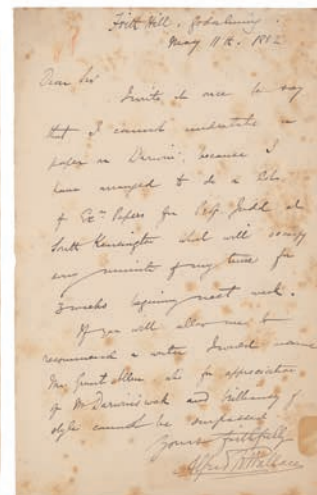 Frith Hill, Godalming.
May 11th. 1882
Dear Sir
I write at once to say
that I cannot undertake a
paper on Darwin, because I
have arranged to do a
of Exn. Papers for Prof. Judd at
South Kensington which will occupy
every minute of my time for
3 weeks beginning next week.
If you will allow me to
recommend a writer I would name
Mr. Grant Allen who for appreciation
of Mr Darwin's work and brilliancy of
style cannot be surpassed
Yours faithfully
Alfred R. Wallace